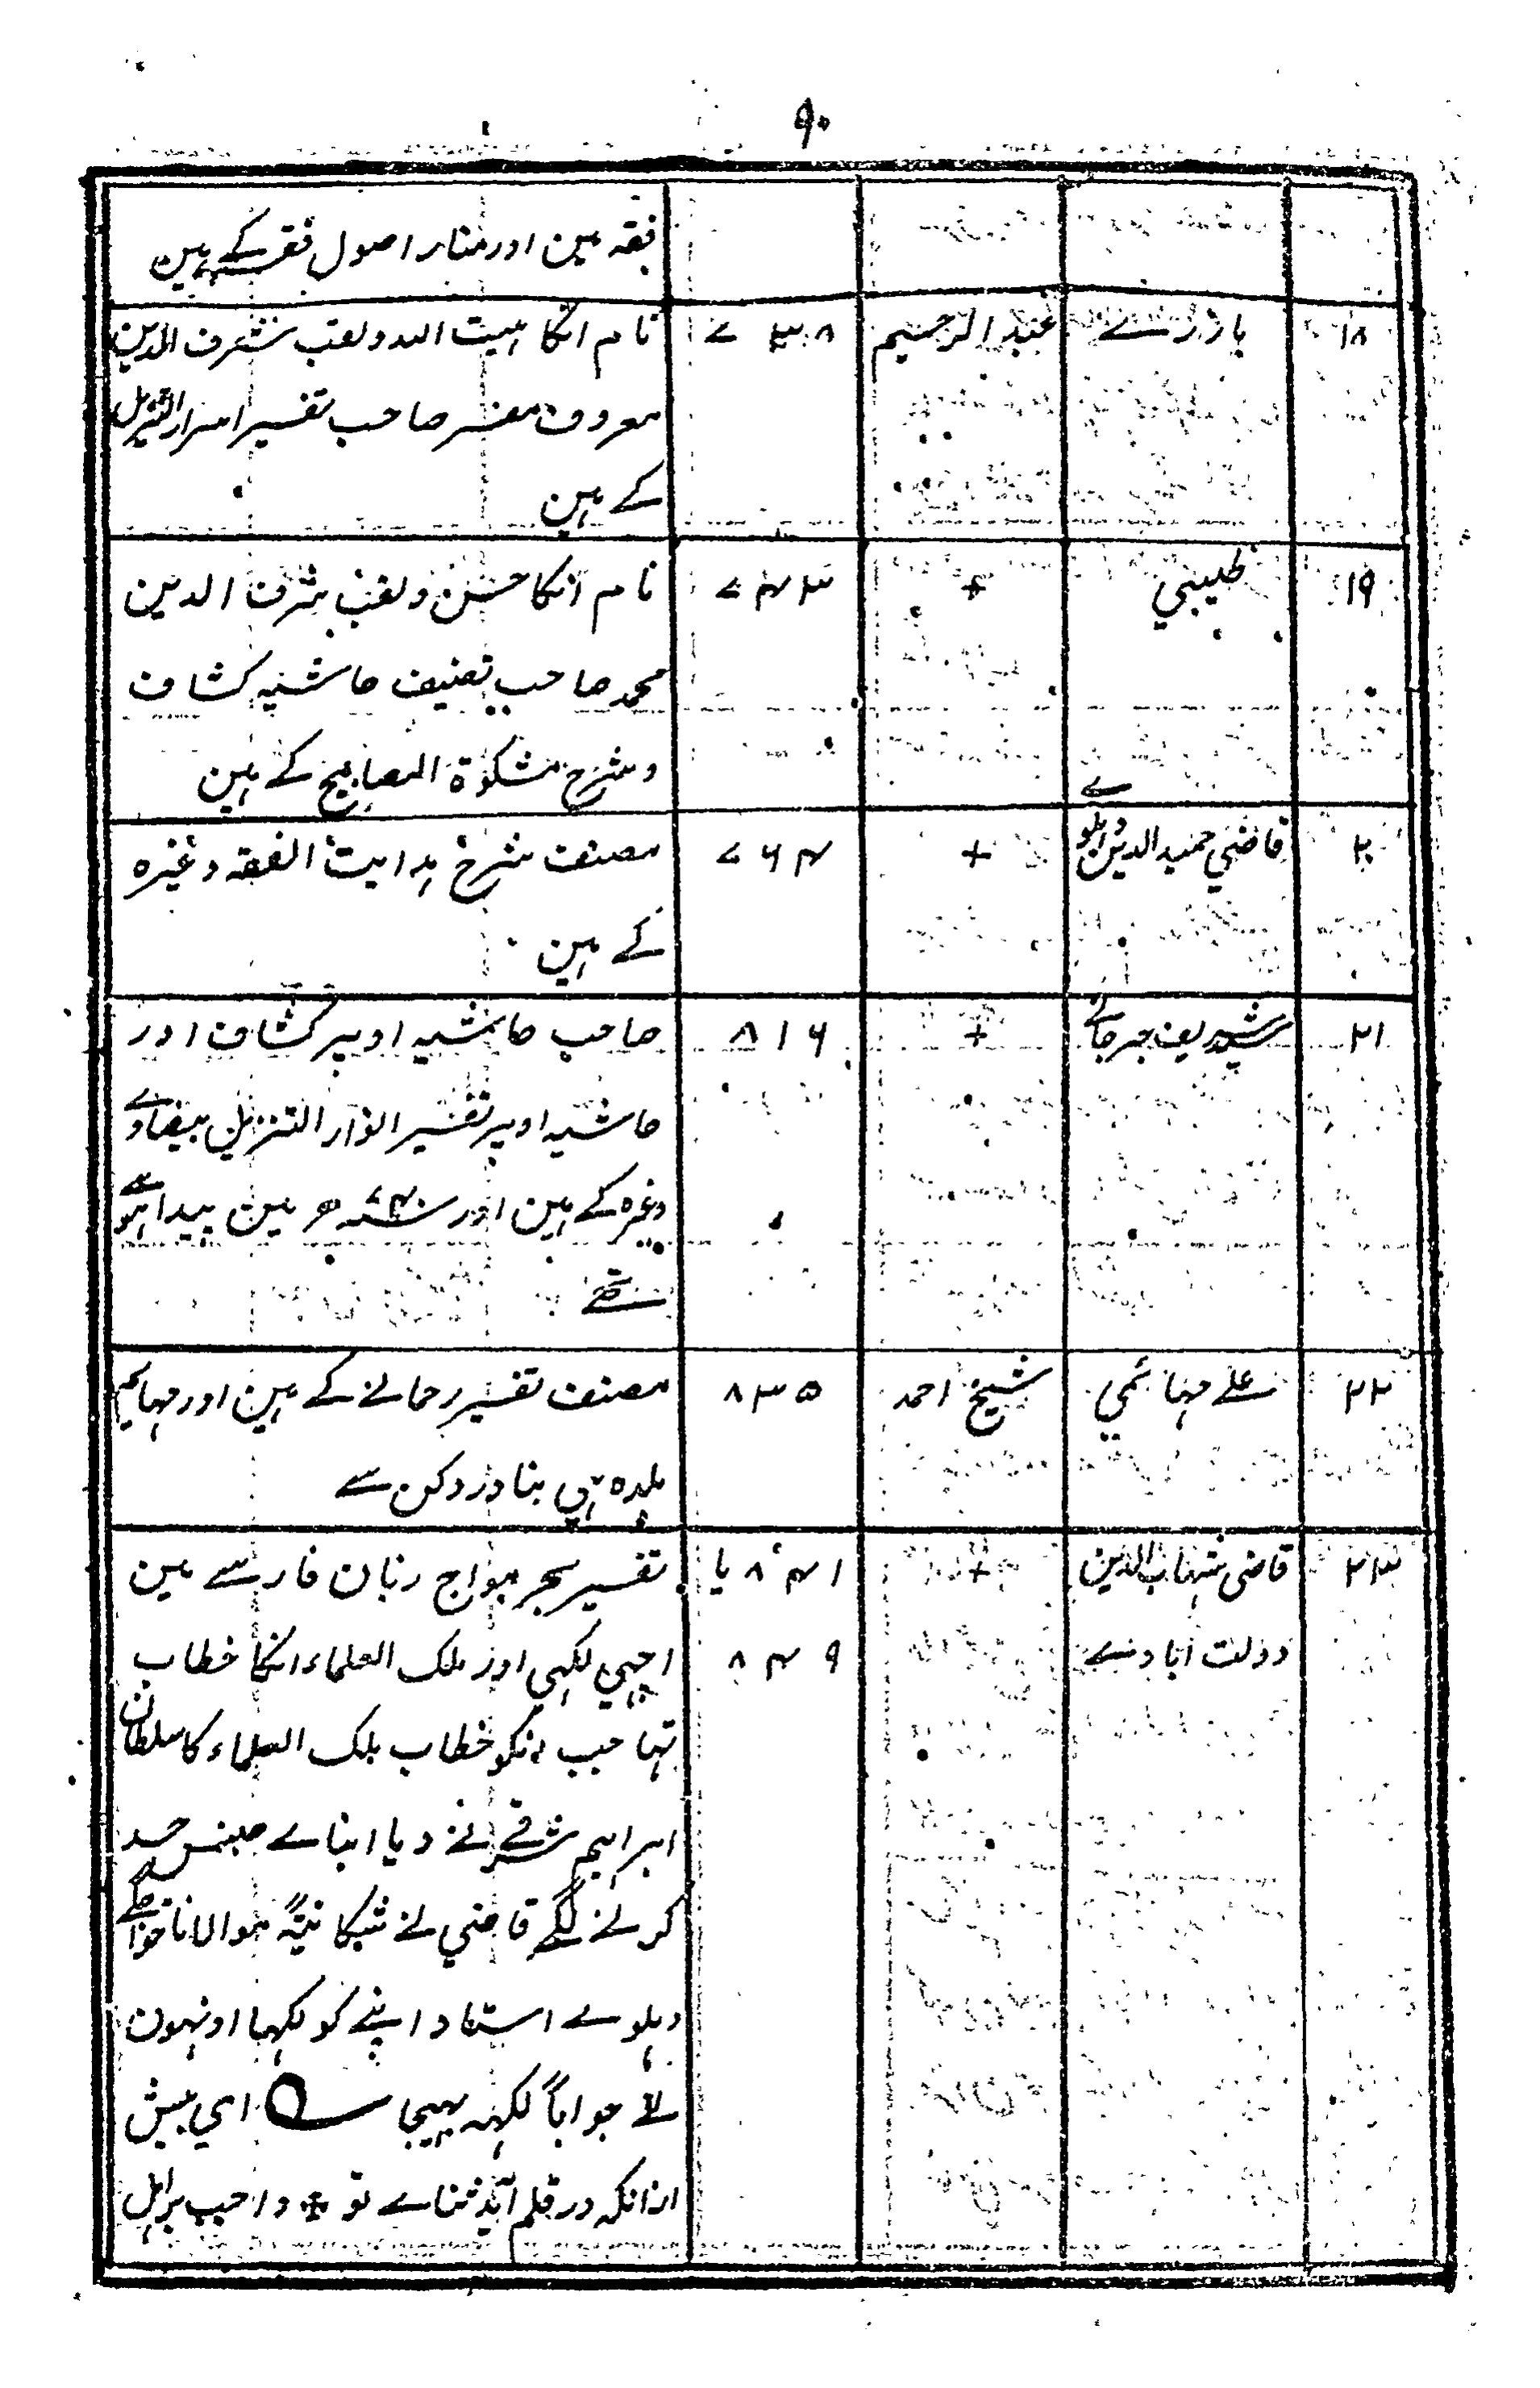 ۹۰
فقہ مین اور منار اصول فقہ کے ہین
۱۸ بازرے عبد الرحیم ۷۳۸ نام انکا ہیبت اللہ ولقب شرف الدین
معروف مفسر صاحب تفسیر اسرار التنزیل
کے ہین
۱۹ طیبي + ۷۴۳ نام انکا حسن ولقب شرف الدین
محمد صاحب تصنیف حاشیہ کشاف
وشرح مشکوۃ المصابیح کے ہین
۲۰ قاضي حمید الدین دہلوے + ۷۶۴ مصنف شرح ہدایت الفقہ وغیرہ
کے ہین
۲۱ سید شریف جرجانے + ۸۱۶ صاحب حاشیہ اوپر کشاف اور
حاشیہ اوپر تفسیر انوار التنزیل بیضاوے
وغیرہ کے ہین اور سنہ ۷۴۰ ھ مین پیدا ہوے
تھے
۲۲ علے مہائمي شیخ احمد ۸۳۵ مصنف تفسیر رحمانے کے ہین اور مہایم
بلدہ ہي بنادر دکن سے
۲۳ قاضی شہاب الدین + ۸۴۱ یا تفسیر بحر مواج زبان فارسے مین
دولت ابادے ۸۴۹ اچہي لکہي اور ملک العلماء انکا خطاب
تہا جب انکو خطاب ملک العلماء کا سلطان
ابراہیم شرقے نے دیا ابناے جنس حسد
کرنے لگے قاضي نے شکایتہً مولانا خواجگے
دہلوے استاد اپنے کو لکہا اونہون
نے جواباً لکہہ بہیجا اي بیش
ازانکہ در قلم آید ثناے تو + واجب براہل